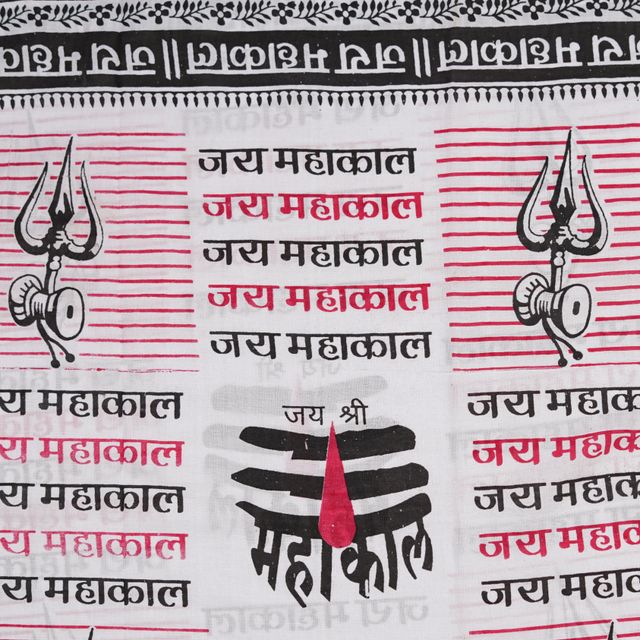 जय महाकाल || जय महाकाल || जय महाकाल || जय महाकाल
जय महाकाल
जय महाकाल
जय महाकाल
जय महाकाल
जय महाकाल
जय महाकाल
जय महाकाल
जय महाकाल
जय महाकाल
जय महाकाल
जय श्री
महाकाल
जय महाकाल
जय महाकाल
जय महाकाल
जय महाकाल
जय महाकाल